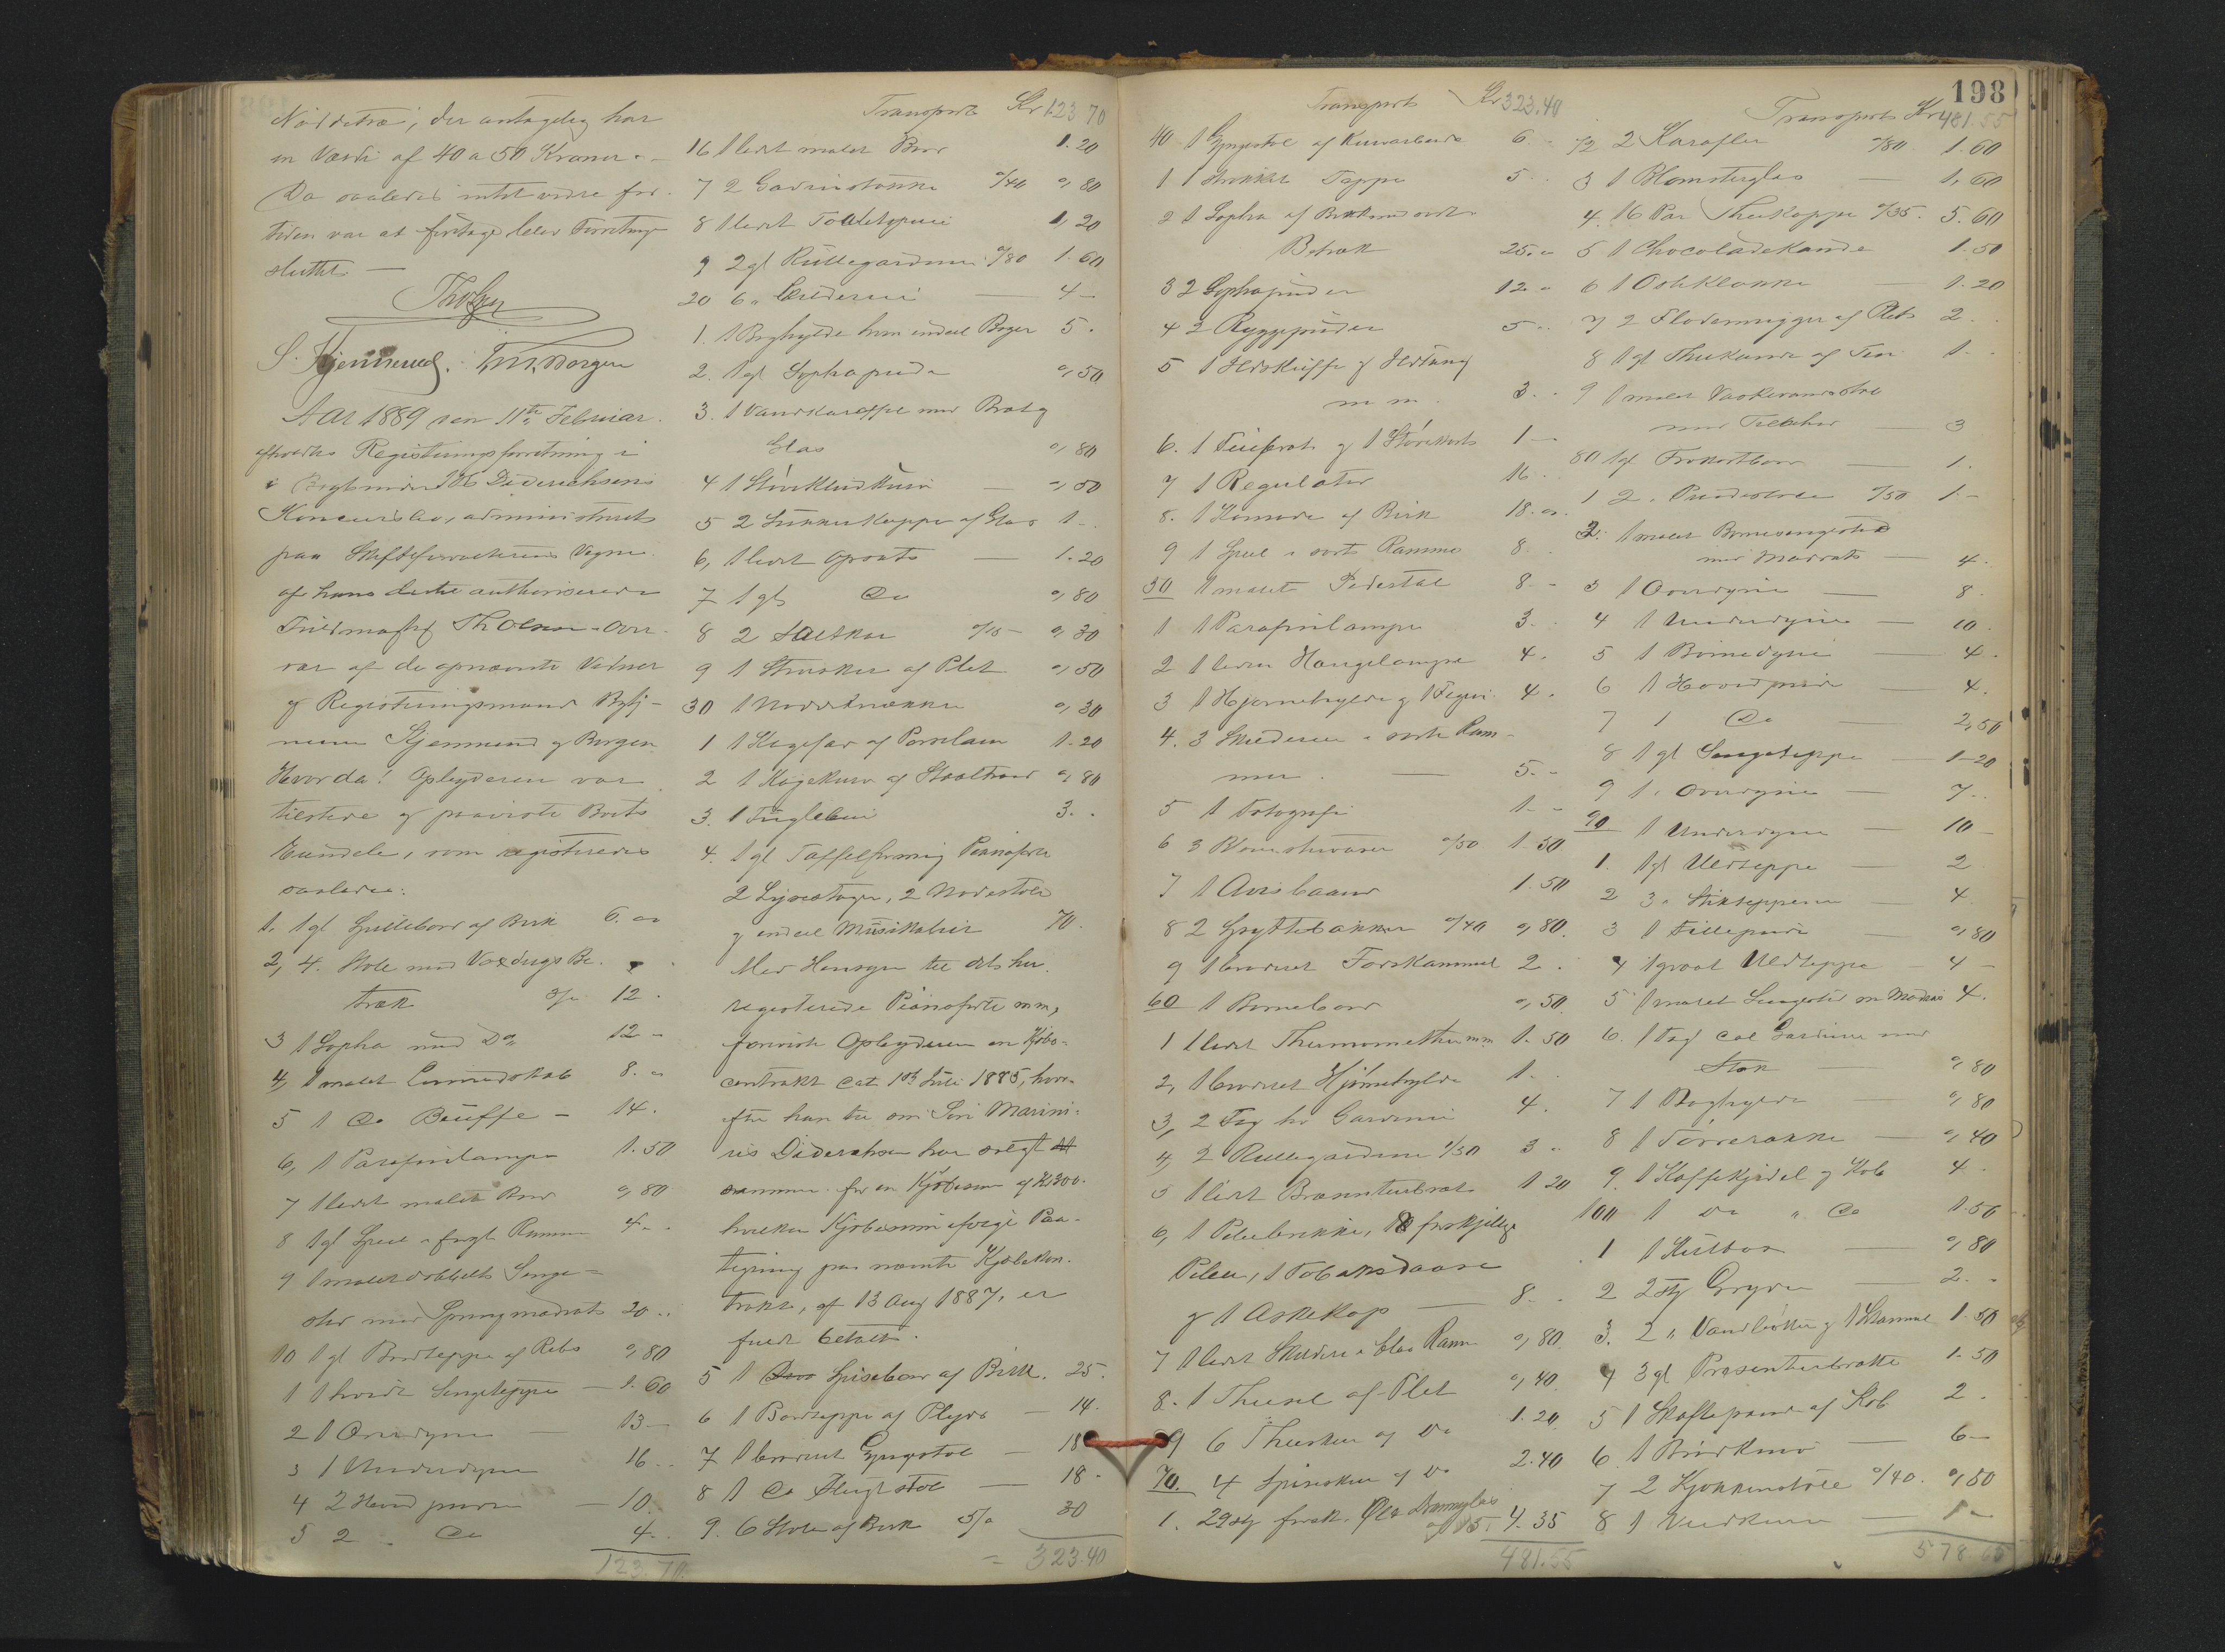 Nøddetræ, der antagelig har
en Værdi af 40 a 50 Kroner. -
Da saaledes intet videre for
tiden var at foretage blev Forretningen
sluttet -
Th Olsen
S. Kjennerud. M. Borgen
Aar 1889 den 11te Februar
afholdtes Registreringsforretning i
i Bogbinder Diderichsens
Koncursbo, administreret
paa Skifteforvalterens Vegne
af hans dertil authoriserede
Fuldmægtig Th Olsen. Over-
var af de opnævnte Vidner
og Registreringsmænd Bytj-
nerne Kjennerud og Borgen
Hvorda! Opbyderen var
tilstede og paaviste Boets
Eiendele, som registreredes
saaledes:
1. 1 gl Spillebord af Birk 6. "
2, 4. Stole med VoxdugsBe-
træk 3/" 12.
3 1 Sopha med Do 12 -
4, 1 malet Linnedskab 8. "
5 1 Do Buffe - 14.
6, 1 Parafinlampe 1.50
7 1 lidet malet Bord " 80
8 1 gl Speil i forgt Ramme 4 - .
9 1 malet dobbelt Senge-
sted med Springmadrats 20 ..
10 1 gl Bordteppe af Rebs " 80
1 1 hvidt Sengeteppe - 1.60
2 1 Overdyne - 13 -
3 1 Underdyne 16 ..
4 2 Hovedpuder - 10.
5 2 - Do 4. .
123.70
Transport Kr 123 70
16 1 lidet malet Bord 1.20
7 2 Gardinstokke "/40 " 80
8 1 lidet Toiletspeil 1,20
9 2 gl Rullegardiner "/80 1.60
20 6 " Skilderier - 4 -
1. 1 Boghylde hvor endeel Bøger 5.
2. 1 gl Sophapude " 50
3. 1 Vandkaraffel med Brat og
Glas " 80
4 1 Strikkeurv - " 50
5 2 Sukkerkopper af Glas 1 -
6, 1 lidet opsats - 1.20
7 1 gl Do " 80
8 2 Saltkar "/15 - " 30
9 1 Strøsker af Plet " 50
30 1 Nøddknækker " 30
1 1 Kagefad af Porselæn 1.20
2 1 Kagekurv af Staaltraad " 80
3. 1 Fuglebuur 3. .
4. 1 gl Taffelformig Pianoforte
2 Lysestager, 2 Nodestole
og endeel Musikalier 70.
Med Hensyn til det her
registerede Pianoforte mm,
foreviste Opbyderen en Kjøbe-
contrakt dat 1ste Juli 1885, hvor-
efter han til sin Søn Marini-
us Diderichsen har solgt det
samme for en Kjøbesum af Kr 300.
hvilken Kjøbesum ifølge Paa-
tegning paa nævnte Kjøbekon-
trakt, af 13 Aug 1887, er
fuldt betalt.
5 1 Spisebord af Birk. 25.
6 1 Bordteppe af Plyds - 14.
7 1 broderet Gyngestol - 18
8 1 Do Slugtstol - 18 -
9. 6 Stole af Birk 5/" 30
= 323.40
Transport Kr 323.40
40 1 Gyngestol af Kurvarbeide 6 -
1 1 strikket Teppe 5. .
2 1 Sopha af Birk med sort
Betræk 25. "
3 2 Sophapuder 12. "
4 2 Rygpuder 5 ..
5 1 Ildskuffe og Ildtang
m m. 3. .
6. 1 Feiebræt og 1 Støvekost 1 -
7 1 Regulator 16 .
8. 1 Komode af Birk 18. "
9 1 Speil i sort Ramme 8. .
50 1 malet Pidestal 8. -
1 1 Parafinlampe 3. .
2 1 liden Hængelampe 4.
3 1 Hjørnehylde og 1 Figur 4.
4. 3 Skilderier i sorte Ram-
mer. - 5. -
5 1 Fotografi 1 - -
6 3 Blomstervaser "/50 1.50
7 1 Avisbaand 1.50
8 2 Spyttebakker "/40 " 80.
9 1 broderet Forskammel 2 .
60 1 Børnebord " 50.
1 1 lidet Thermometer mm 1.50
2, 1 broderet Hjørnehylde 1 .
3, 2 Fag hv Gardiner 4.
4, 2 Rullegardiner 1/50 3 "
5 1 lidet Præsenterbræt 1 20
6, 1 Pibebrikke, 18 forskjellige
Piber, 1 Tobaksdaase
og 1 Askekop - 8. .
7 1 lidet Skilderi i Glas Ramme " 80.
8. 1 Thesil af Plet " 40
9 6 Theskeer af Do 1.20
70. 4 Spiseskeer af Do 2.40
1. 29 stk forsk. Øl & Dramglas
"/15. 4.35
481.55
198
Transport Kr 481.55
72 2 Karafler "/80 1.60
3 1 Blomsterglas - 1,60
4. 16 Par Thekopper "/35. 5.60
5 1 Chocoladekande 1.50
6 1 Osteklokke - 1.20
7 2 Flødemugger af Plet 2 .
8 1 gl Thekande af Tin 1. .
9 1 malet Vaskevandsstol
med Tilbehør - 3
80 1 gl Frokostbord - 1.
1 2. Pindestole "/50 1. -
2. 1 malet Børnesengested
med Madrats - 4.
3 1 Overdyne - 8 .
4 1 Underdyne - 10 .
5 1 Børnedyne - 4.
6 1 Hovedpude - 4.
7 1 Do - 2,50
8 1 gl Sengeteppe - 1-20
9 1. Overdyne - 7 ..
90 1 Underdyne - 10 -
1. 1 gl Uldteppe - 2
2 3. Stikteppener - 4.
3 1 Fillepude - " 80
4 1 graat Uldteppe - 4 -
5 1 malet Sengested m Madras 4.
6. 1 Fag col Gardiner med
Stok - " 80
7 1 Boghylde - " 80
8 1 Tørrerække - " 40
9. 1 Kaffekjedel af Kob 4 -
100 1 Do " Do 1.50
1 1 Kulbox - " 80
2 2 stk Gryder - 2. .
3. 2 " Vandbøtter og 1 Skammel 1.50
4 3 gl Præsenterbrætte 1.50
5 1 Skaftepande af Kob 2 .
6. 1 Brødkurv - 6 -
7 2 Kjøkkenstole "/40. " 80
8 1 Vedkurv - 1 -
578.65